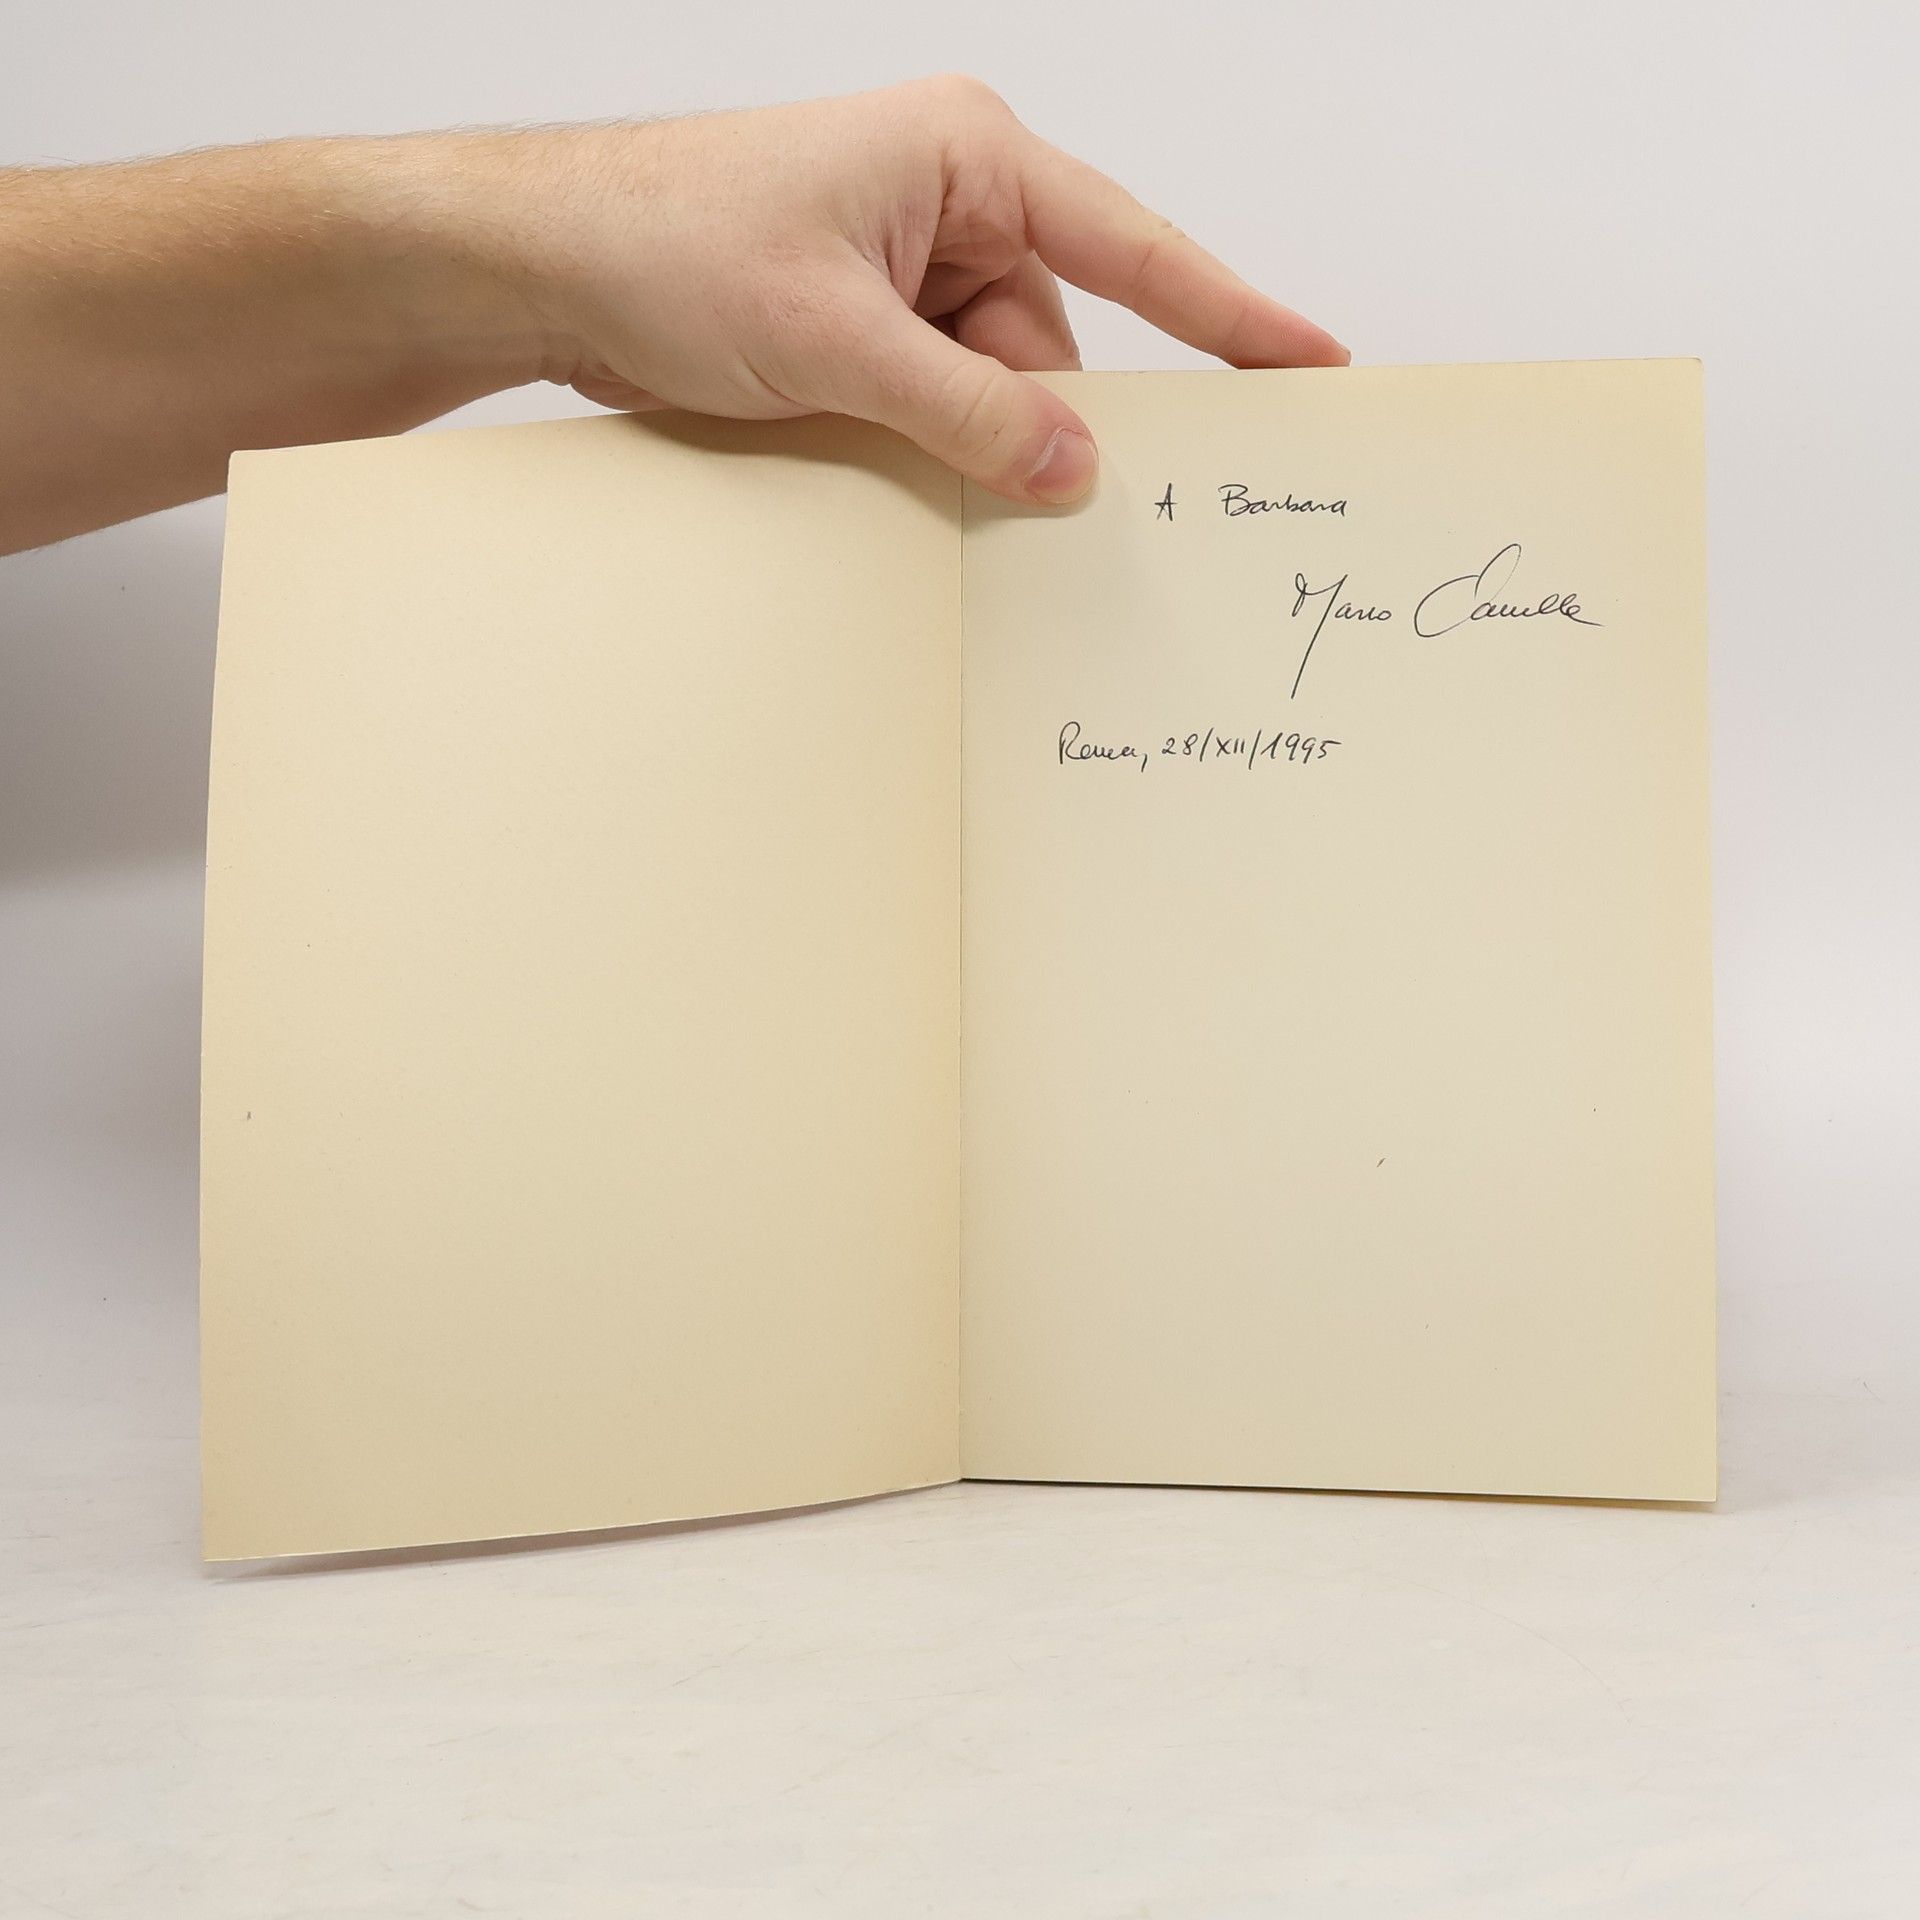 A Barbara
Mario Camille
Roma, 28/XII/1995